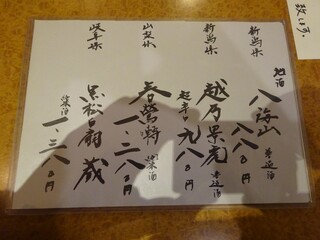 致します。
地酒
新潟県
八海山
普通酒
八八〇円
新潟県
越乃景虎
普通酒
超辛口
九八〇円
山梨県
春鶯囀
純米酒
一、二八〇円
岐阜県
黒松白扇
蔵
純米酒
一、三八〇円